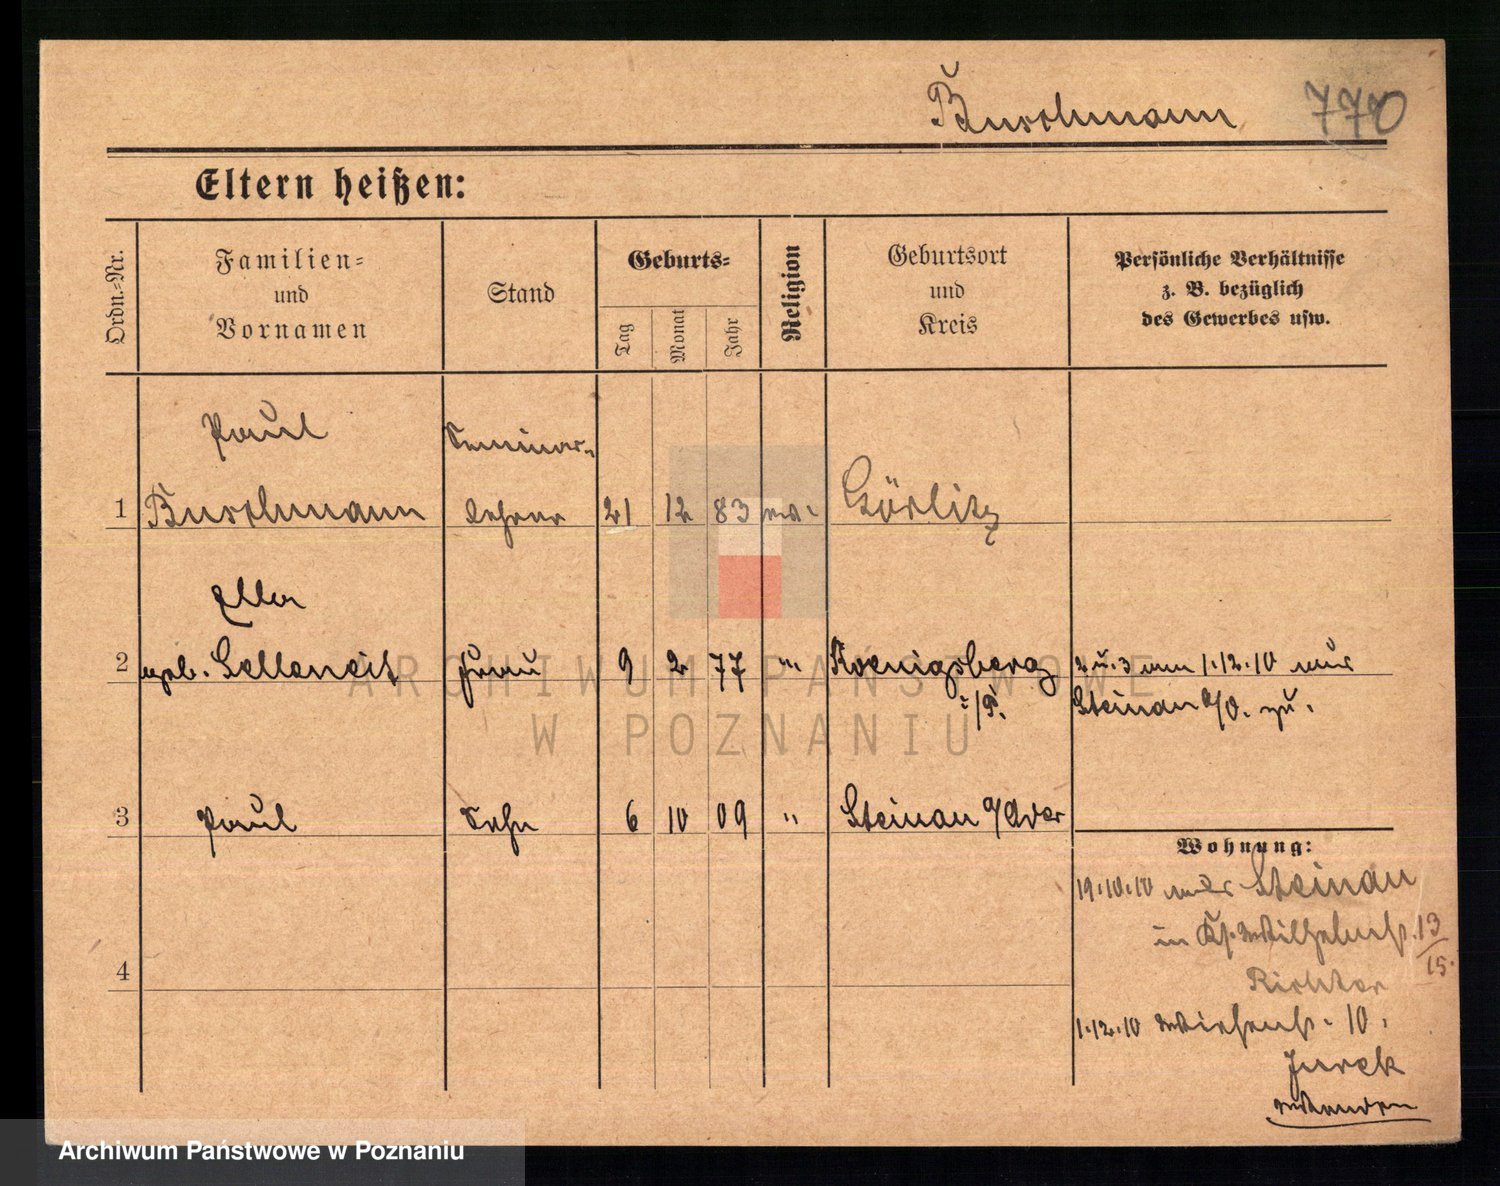 Buschmann 770
Eltern heißen:
Ordn.-Nr.
Familien-
und
Vornamen
Stand
Geburts-
Tag
Monat
Jahr
Religion
Geburtsort
und
Kreis
Persönliche Verhältnisse
z. B. bezüglich
des Gewerbes usw.
Paul Seminar-
1 Buschmann lehrer 21 12 83 ev. Görlitz
Ella
2 geb. Selleneit Frau 9 2 77 " Koenigsberg
i/P.
2 u. 3 am 1.12.10 aus
Steinau a/O. zu.
3 Paul Sohn 6 10 09 " Steinau a/Oder
4
Wohnung:
19.10.10 aus Steinau
in Wilhelmstr. 13/15.
Richter
1.12.10 10.
Jurek
ARCHIWUM PAŃSTWOWE
W POZNANIU
Archiwum Państwowe w Poznaniu